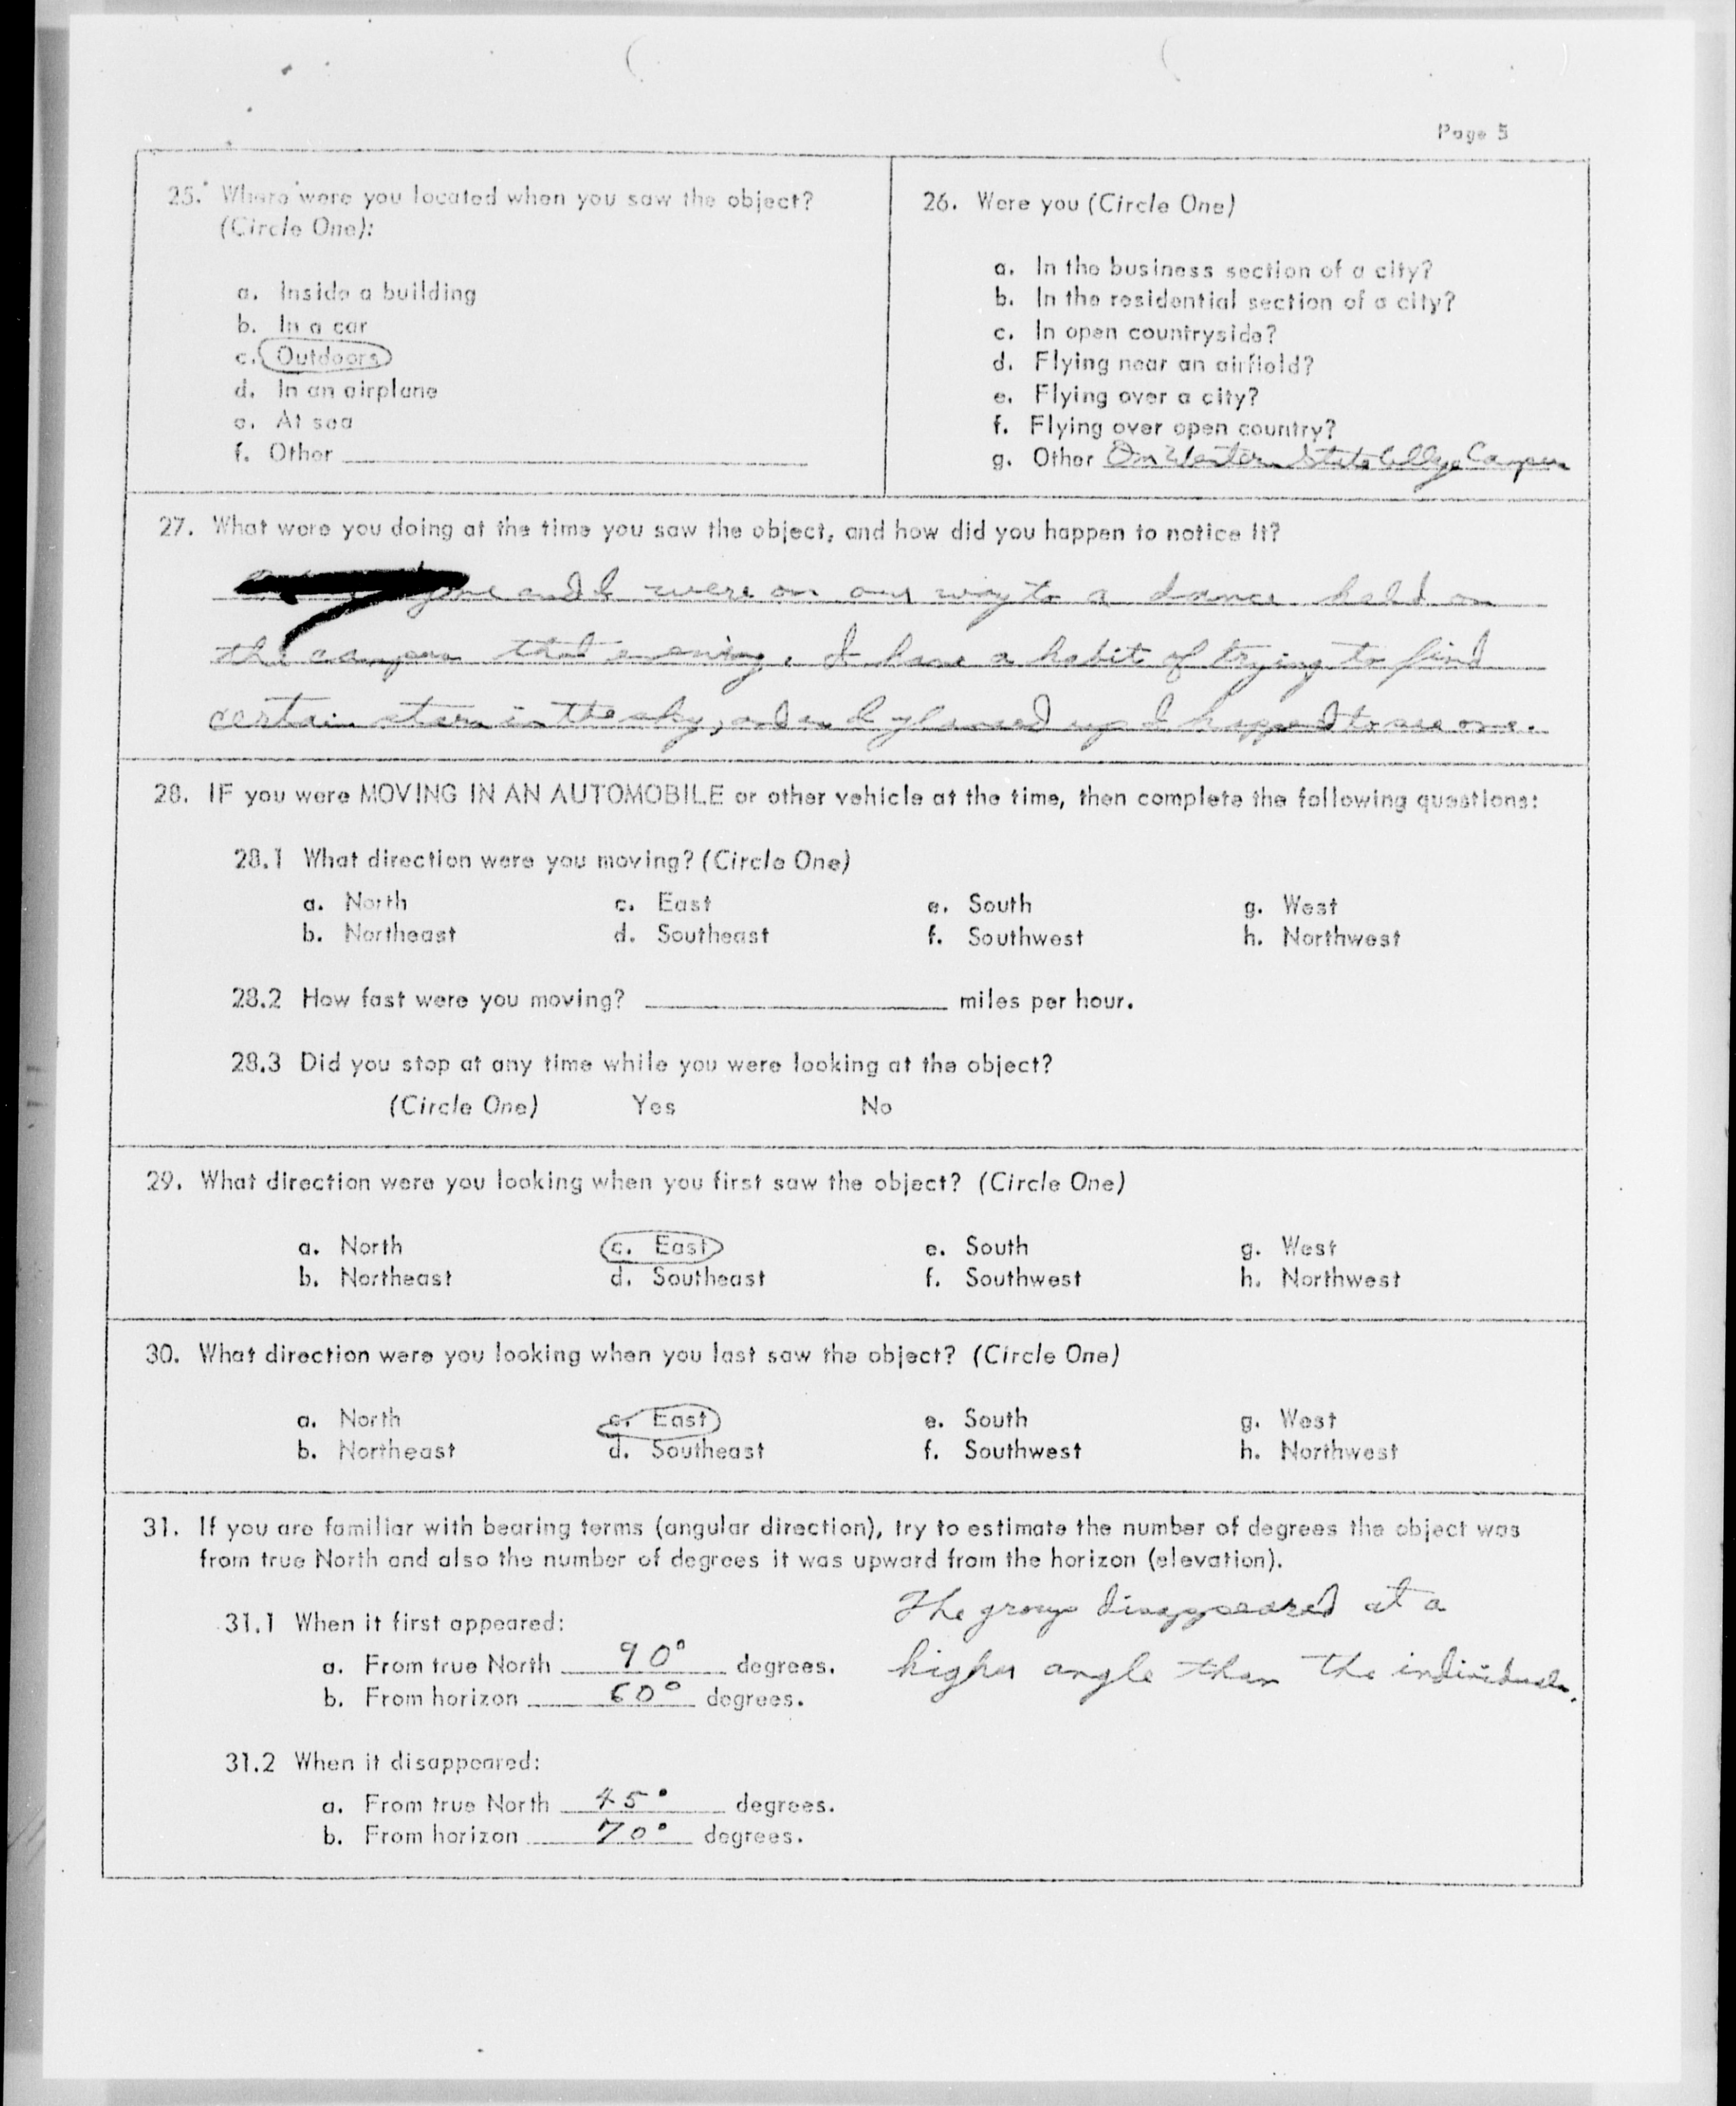 Page 5
25. Where were you located when you saw the object?
(Circle One):
a. Inside a building
b. In a car
c. Outdoors
d. In an airplane
e. At sea
f. Other
26. Were you (Circle One)
a. In the business section of a city?
b. In the residential section of a city?
c. In open countryside?
d. Flying near an airfield?
e. Flying over a city?
f. Flying over open country?
g. Other On Western State College Campus
27. What were you doing at the time you saw the object, and how did you happen to notice it?
and I were on our way to a dance held on
the campus that evening. I have a habit of trying to find
certain stars in the sky, and as I glanced up I happened to see one.
28. IF you were MOVING IN AN AUTOMOBILE or other vehicle at the time, then complete the following questions:
28.1 What direction were you moving? (Circle One)
a. North c. East e. South g. West
b. Northeast d. Southeast f. Southwest h. Northwest
28.2 How fast were you moving? miles per hour.
28.3 Did you stop at any time while you were looking at the object?
(Circle One) Yes No
29. What direction were you looking when you first saw the object? (Circle One)
a. North c. East e. South g. West
b. Northeast d. Southeast f. Southwest h. Northwest
30. What direction were you looking when you last saw the object? (Circle One)
a. North c. East e. South g. West
b. Northeast d. Southeast f. Southwest h. Northwest
31. If you are familiar with bearing terms (angular direction), try to estimate the number of degrees the object was
from true North and also the number of degrees it was upward from the horizon (elevation).
The group disappeared at a
higher angle than the individuals.
31.1 When it first appeared:
a. From true North 90° degrees.
b. From horizon 60° degrees.
31.2 When it disappeared:
a. From true North 45° degrees.
b. From horizon 70° degrees.